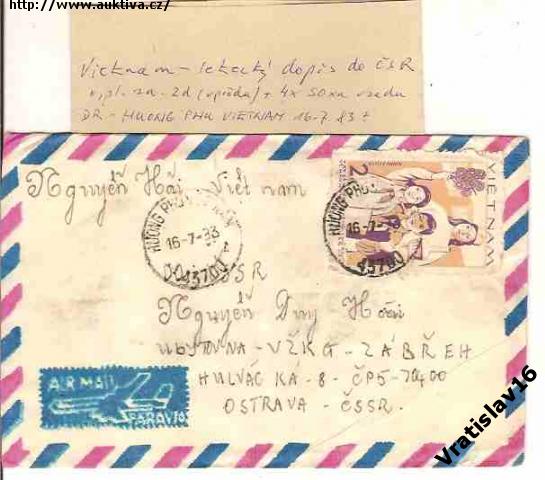 http://www.auktiva.cz/
Vietnam - letecký dopis do ČSR
vypl. zn. 2d (vpředu) + 4x 50xu vzadu
DR - HUONG PHU VIETNAM 16-7-83
Nguyễn Hải - Việt nam
VIETNAM
2
HUONG PHU
16-7-83
43700
HUONG PHU
16-7-83
43700
ČSSR
Nguyễn Duy Hoài
UBYTOVNA - VŽKG - ZÁBŘEH
HULVÁCKÁ - 8 - ČP5 - 70400
OSTRAVA - ČSSR.
AIR MAIL
PAR AVION
Vratislav16